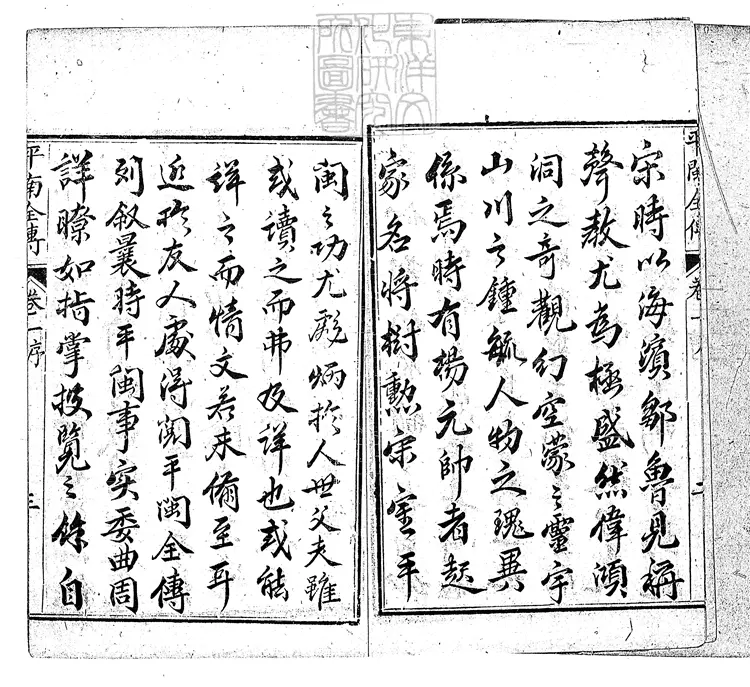 東洋文
化研究
所圖書
平閩全傳 卷一
宋時以海濱鄒魯見稱
聲教尤為極盛然偉澒
洞之奇觀幻空濛之靈宇
山川之鍾毓人物之瑰異
係焉時有楊元帥者起
家名将樹勲宋室平
閩之功尤彪炳扵人世父夫雖
或讀之而弗及詳也或能
詳之而情文若未備至耳
近扵友人處得閱平閩全傳
列叙曩時平閩事实委曲周
詳瞭如指掌披覽之餘自
平南全傳 卷一序 三